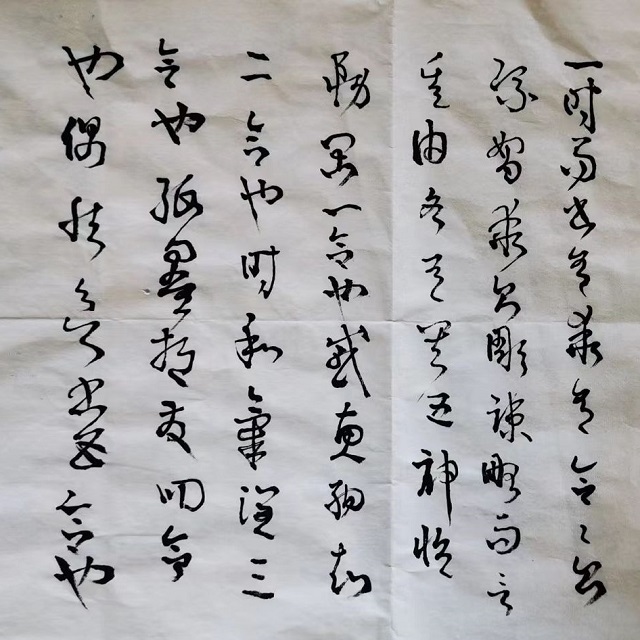 一時而書有乖有合〻則
流媚乖則彫疎略而言
其由各有其五神怡
務閑一合也感惠徇知
二合也時和氣潤三
合也紙墨相發四合
也偶然欲書五合也